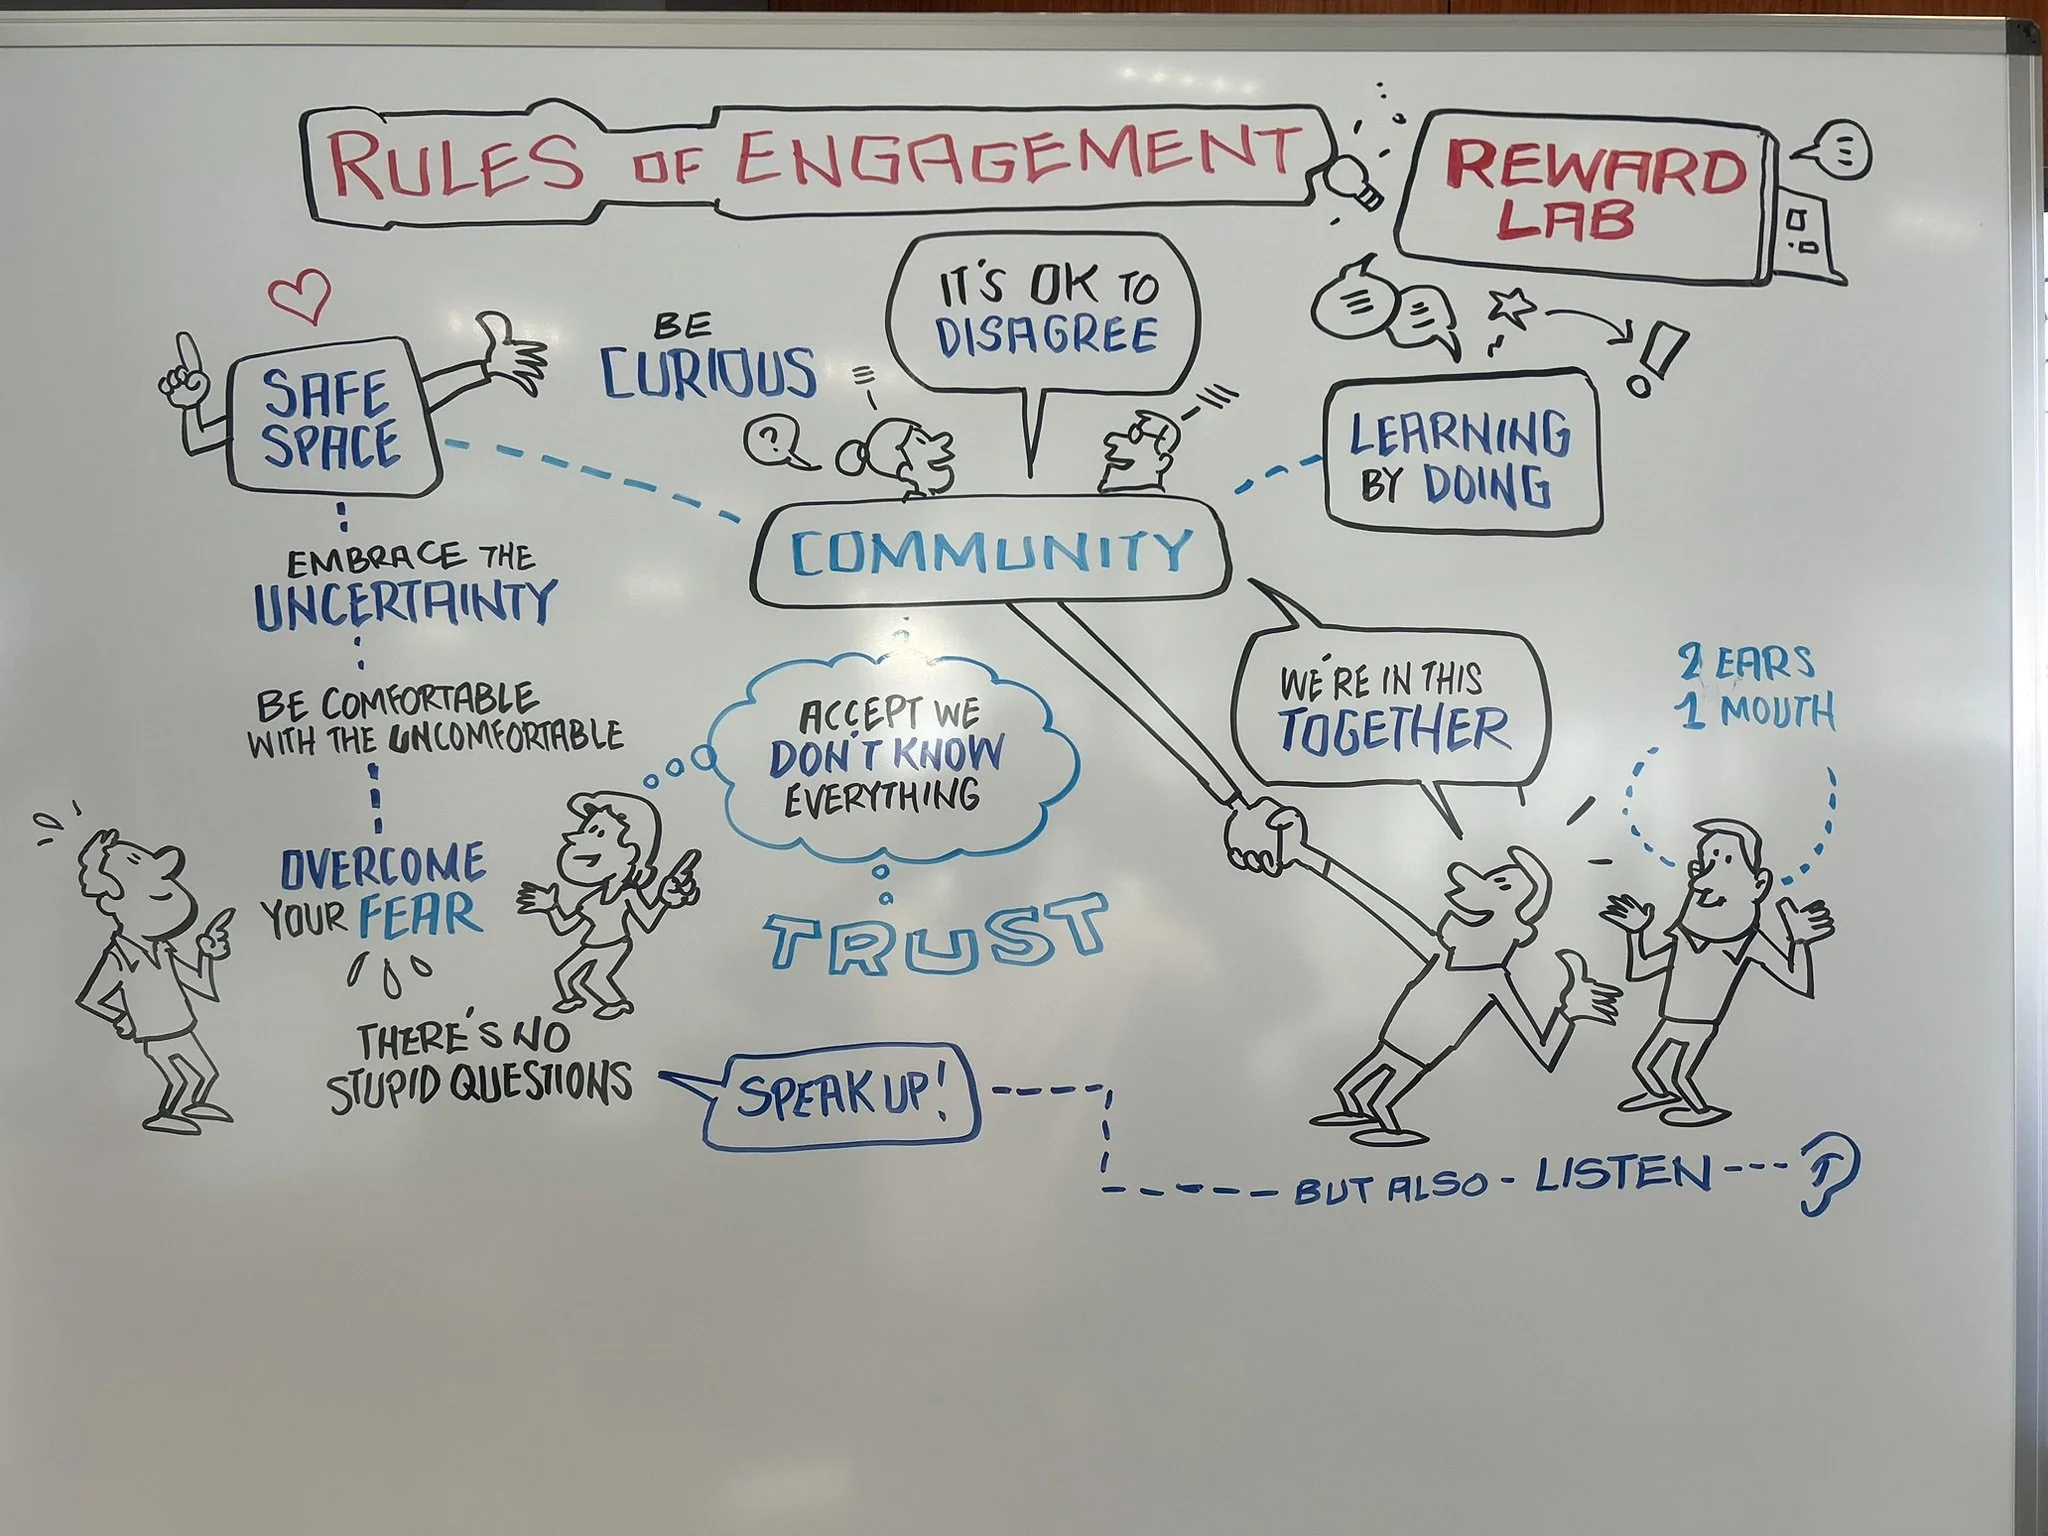 RULES OF ENGAGEMENT
REWARD
LAB
SAFE
SPACE
BE
CURIOUS
?
IT'S OK TO
DISAGREE
!
LEARNING
BY DOING
COMMUNITY
EMBRACE THE
UNCERTAINTY
BE COMFORTABLE
WITH THE UNCOMFORTABLE
OVERCOME
YOUR FEAR
THERE'S NO
STUPID QUESTIONS
ACCEPT WE
DON'T KNOW
EVERYTHING
TRUST
WE'RE IN THIS
TOGETHER
2 EARS
1 MOUTH
SPEAK UP!
BUT ALSO - LISTEN